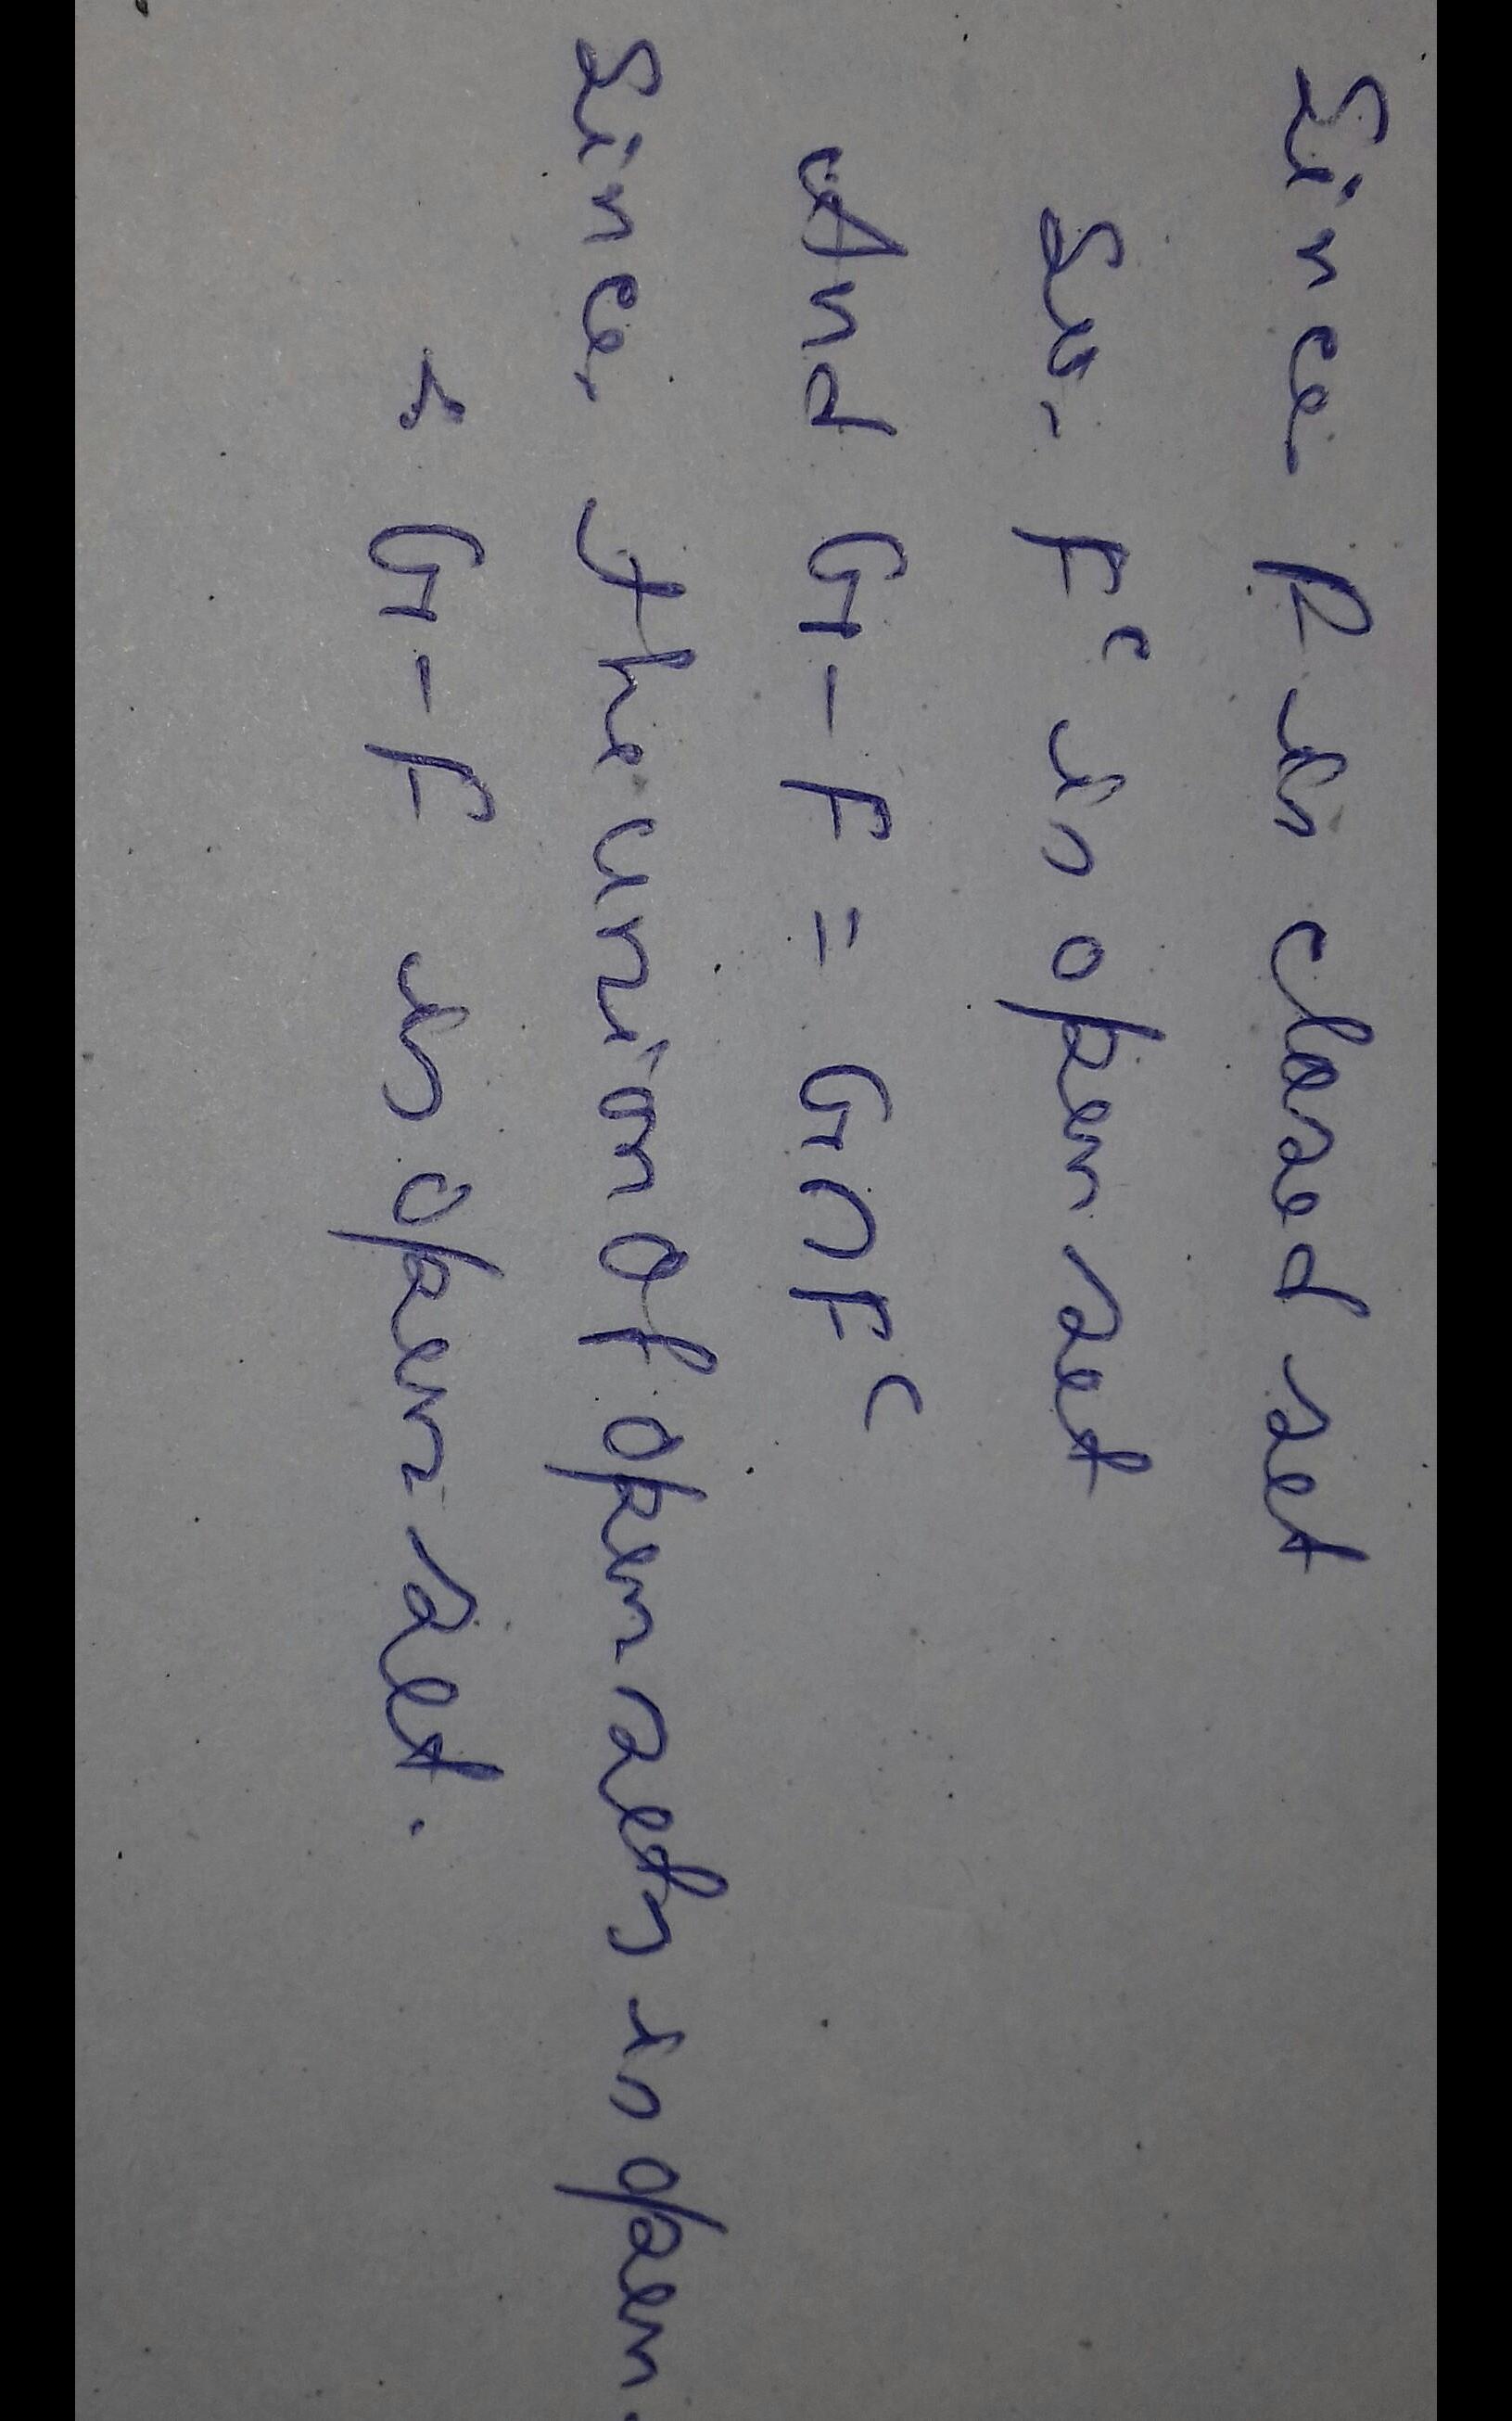 Since F is closed set
So. Fᶜ is open set
And G-F = G∩Fᶜ
Since, the union of open sets is open.
∴ G-F is open set.